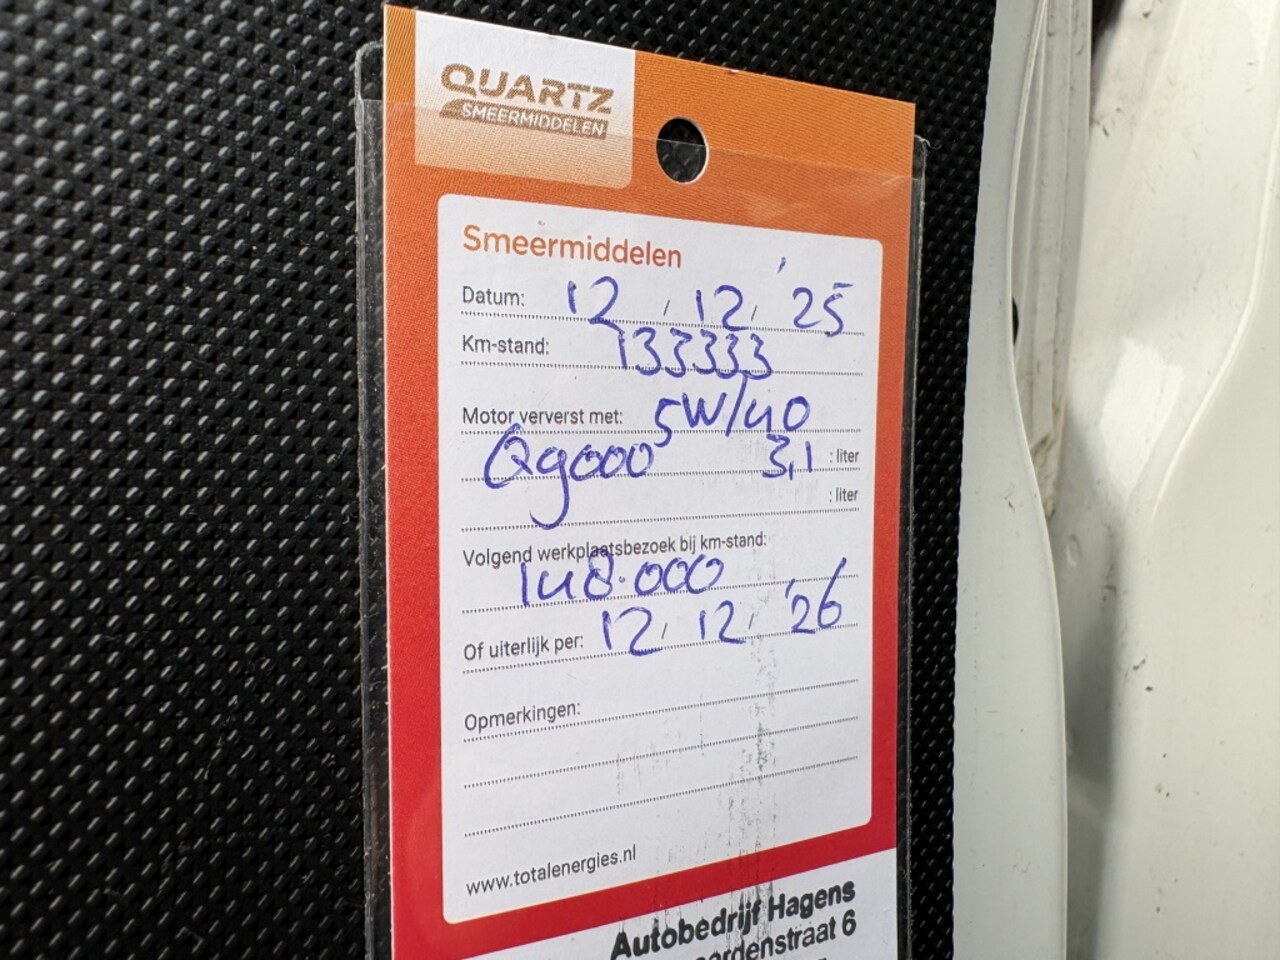 QUARTZ
SMEERMIDDELEN
Smeermiddelen
Datum: 12 / 12 / '25
Km-stand: 133333
Motor ververst met: 5W/40
Q9000 3,1 : liter
: liter
Volgend werkplaatsbezoek bij km-stand:
148.000
Of uiterlijk per: 12 / 12 / '26
Opmerkingen:
www.totalenergies.nl
Autobedrijf Hagens
6